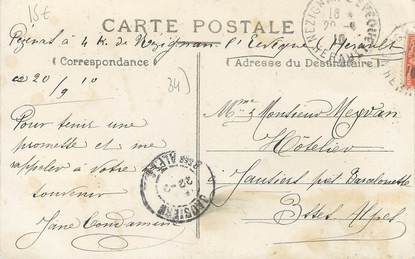 15€
CARTE POSTALE
Pézenas à 4 k. de Nézignan l'Evêque (Hérault)
(Correspondance
Adresse du Destinataire)
ce 20/9 10
34)
Pour tenir une
promesse et me
rappeler à votre
souvenir
Jane Condamine
Mme & Monsieur Meyran
Hôtelier
Jausiers près Barcelonette
Bsses Alpes
NEZIGNAN L'EVEQUE
HERAULT
JAUSIERS
BSES ALPES
22-9